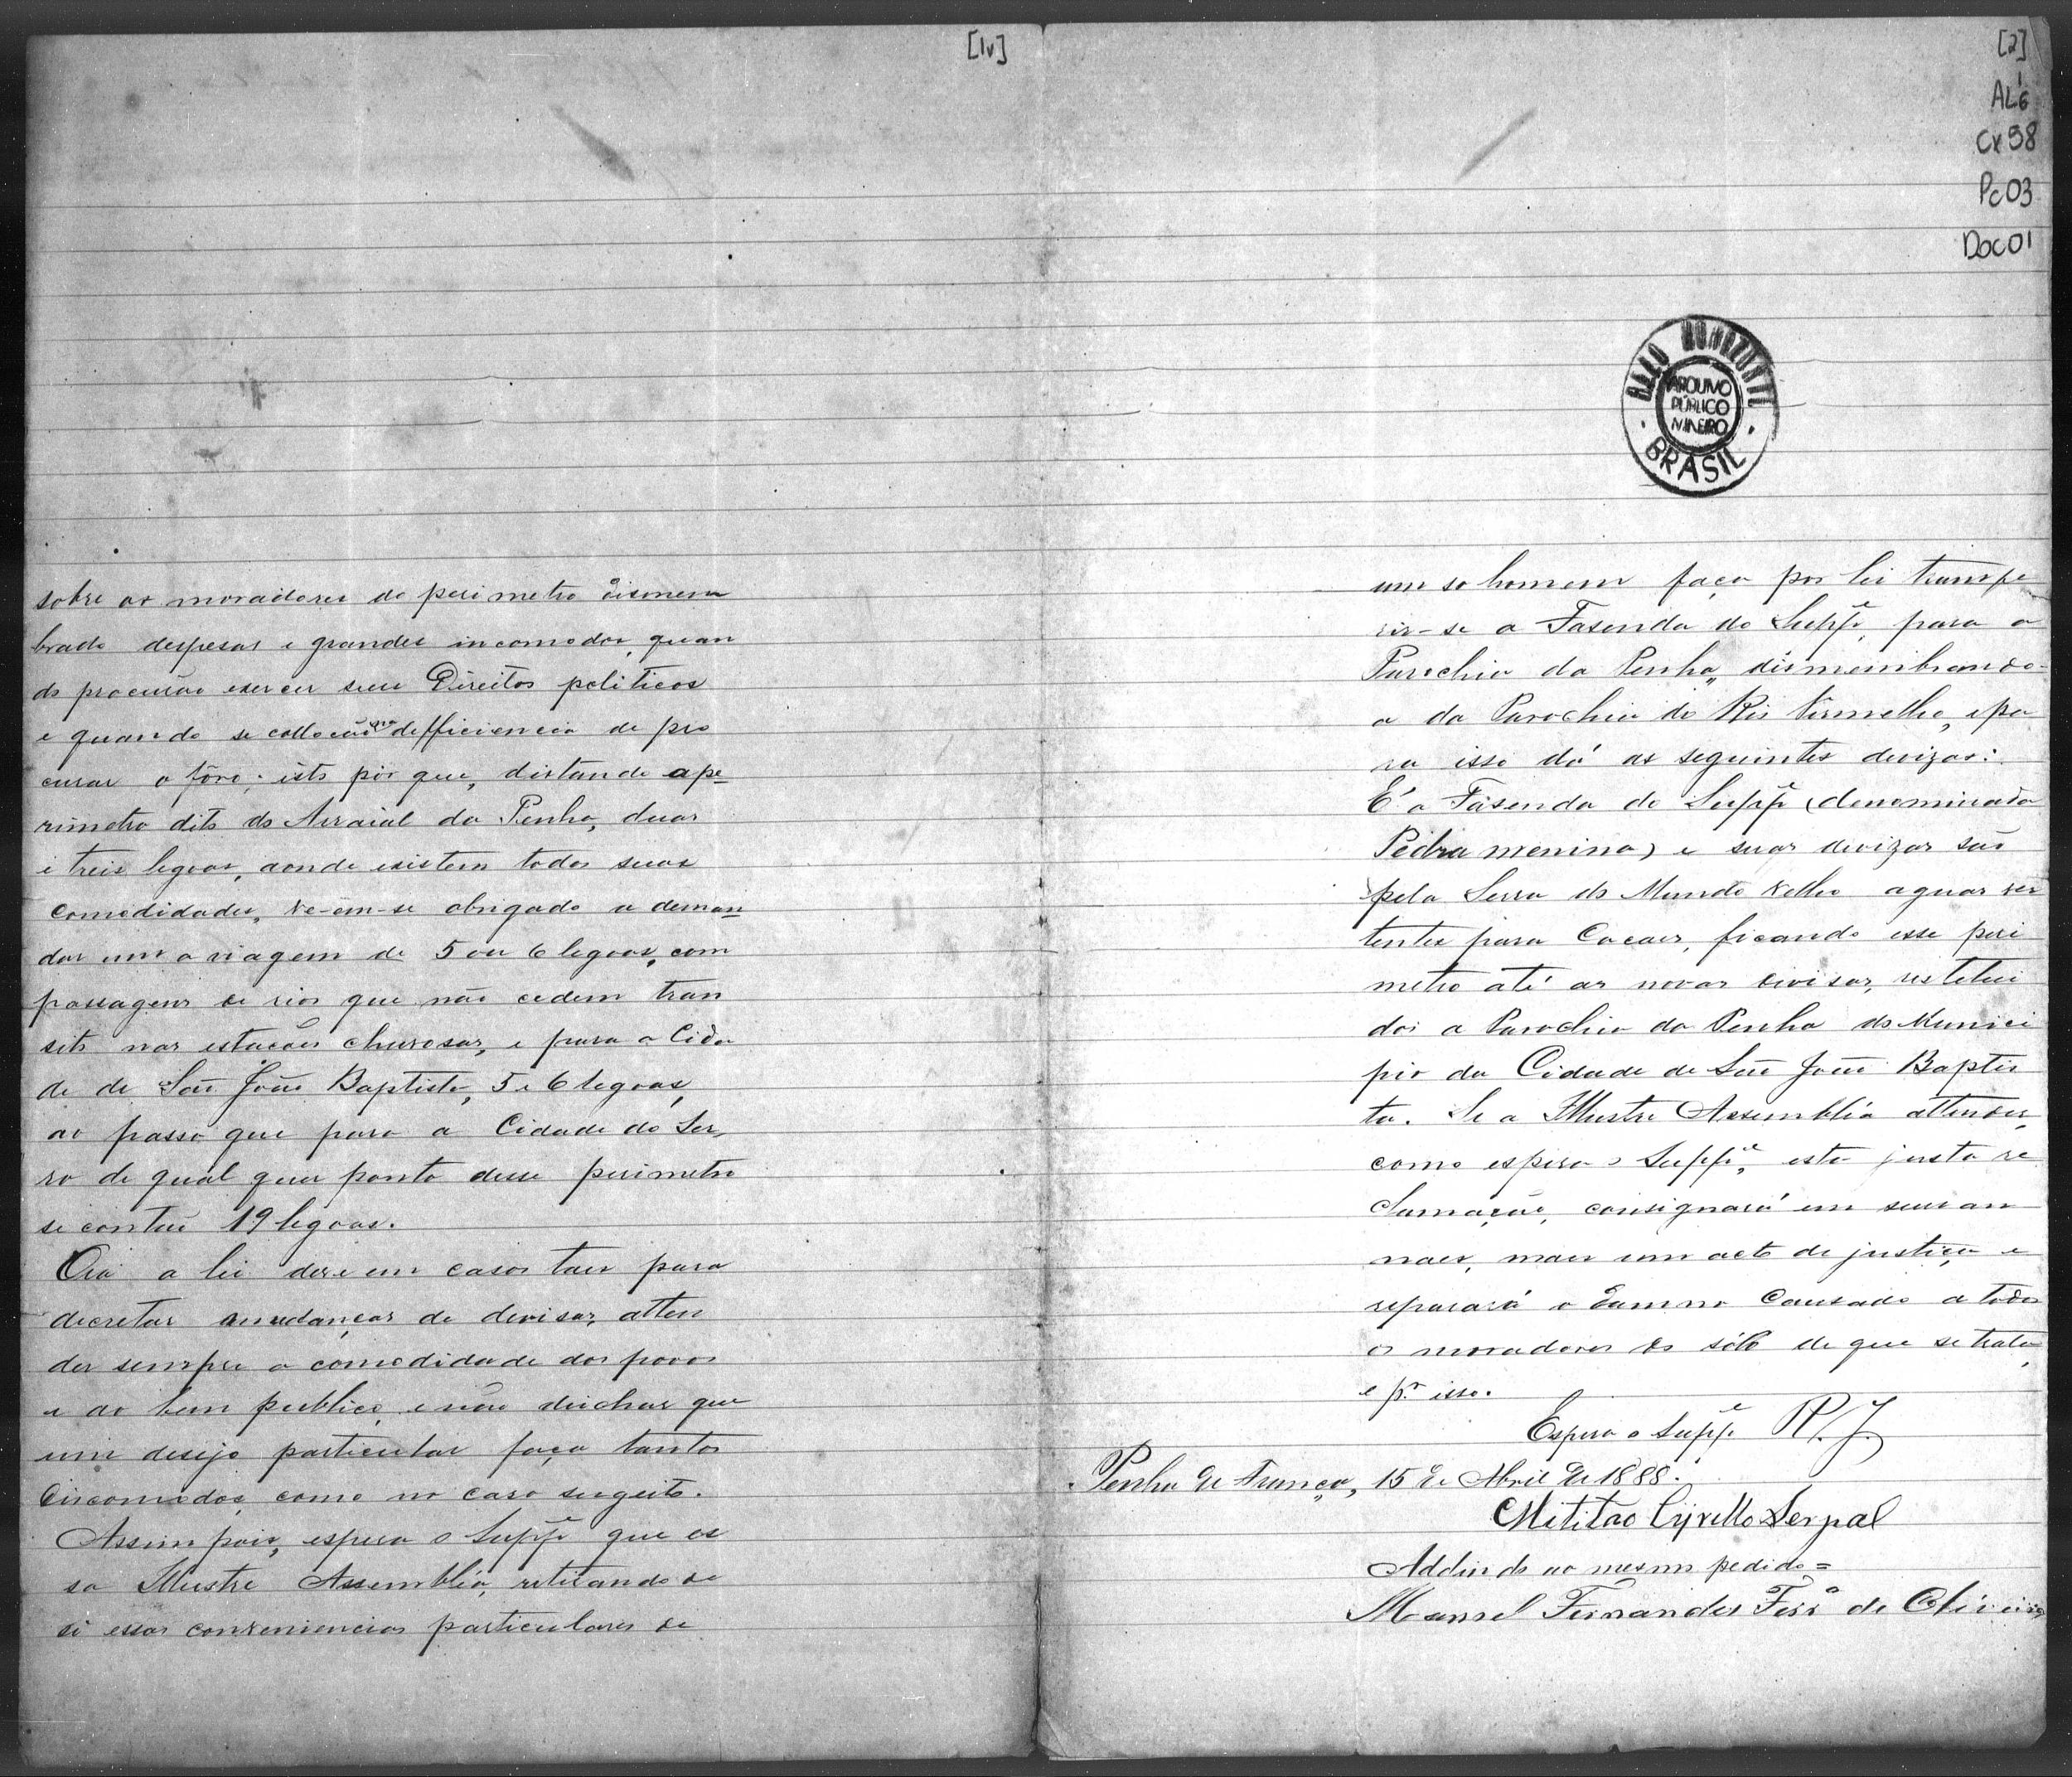 [1v]
sobre os moradores do perimetro dismem
brado despesas e grandes incomodos, quan
do procurão exercer seus Direitos politicos
e quando se collocão na defficiencia de pro
curar o fôro; isto por que, distando o pe-
rimetro dito do Arraial da Penha, duas
e treis legoas, aonde existem todas suas
comodidades, ve-em-se obrigado a deman
dar uma viagem de 5 ou 6 legoas, com
passagens de rios que não cedem tran
sito nas estacões chuvosas, e para a Cida
de de São João Baptista, 5 e 6 legoas,
ao passo que para a Cidade do Ser
ro de qual quer ponto desse perimetro
se contão 19 legoas.
Ora a lei deve em casos taes para
decretar mudanças de devisas, atten
der sempre a comodidade dos povos
e ao bem publico, e não deichar que
um desejo particular faça tantos
incomodos, como no caso sugeito.
Assim pois, espera o Suppe que es
sa Illustre Assembléa, retirando de
si essas conveniencias particulares de
[2]
AL6
Cx 98
Pc 03
Doc 01
BELLO HORIZONTE
ARQUIVO
PÚBLICO
MINEIRO
BRASIL
um so homem faça por lei transfe
rir-se a Fasenda do Suppe, para a
Parochia da Penha, dismembrando-
a da Parochia do Rio Vermelho, e pa
ra isso dá as seguintes devizas:
É a Fasenda do Suppe (denominada
Pedra menina) e suas devizas são
pela Serra do Mundo Velho aguas ver
tentes para Cocaes, ficando esse peri
metro até as novas devisas, restetui
dos a Parochia da Penha do Munici
pio da Cidade de São João Baptis
ta. Se a Illustre Assembléa attender,
como espera o Suppe, esta justa re
clamação, consignará em seus an
naes, mais um acto de justiça e
reparará o damno causado a todos
os moradores do sólo de que se trata,
e pr isso.
Espera o Suppe R. J.
Penha de França, 15 de Abril de 1888.
Mititão Cyrillo
Addindo ao mesmo pedido =
Manoel Fernandes Ferra de Oliveira